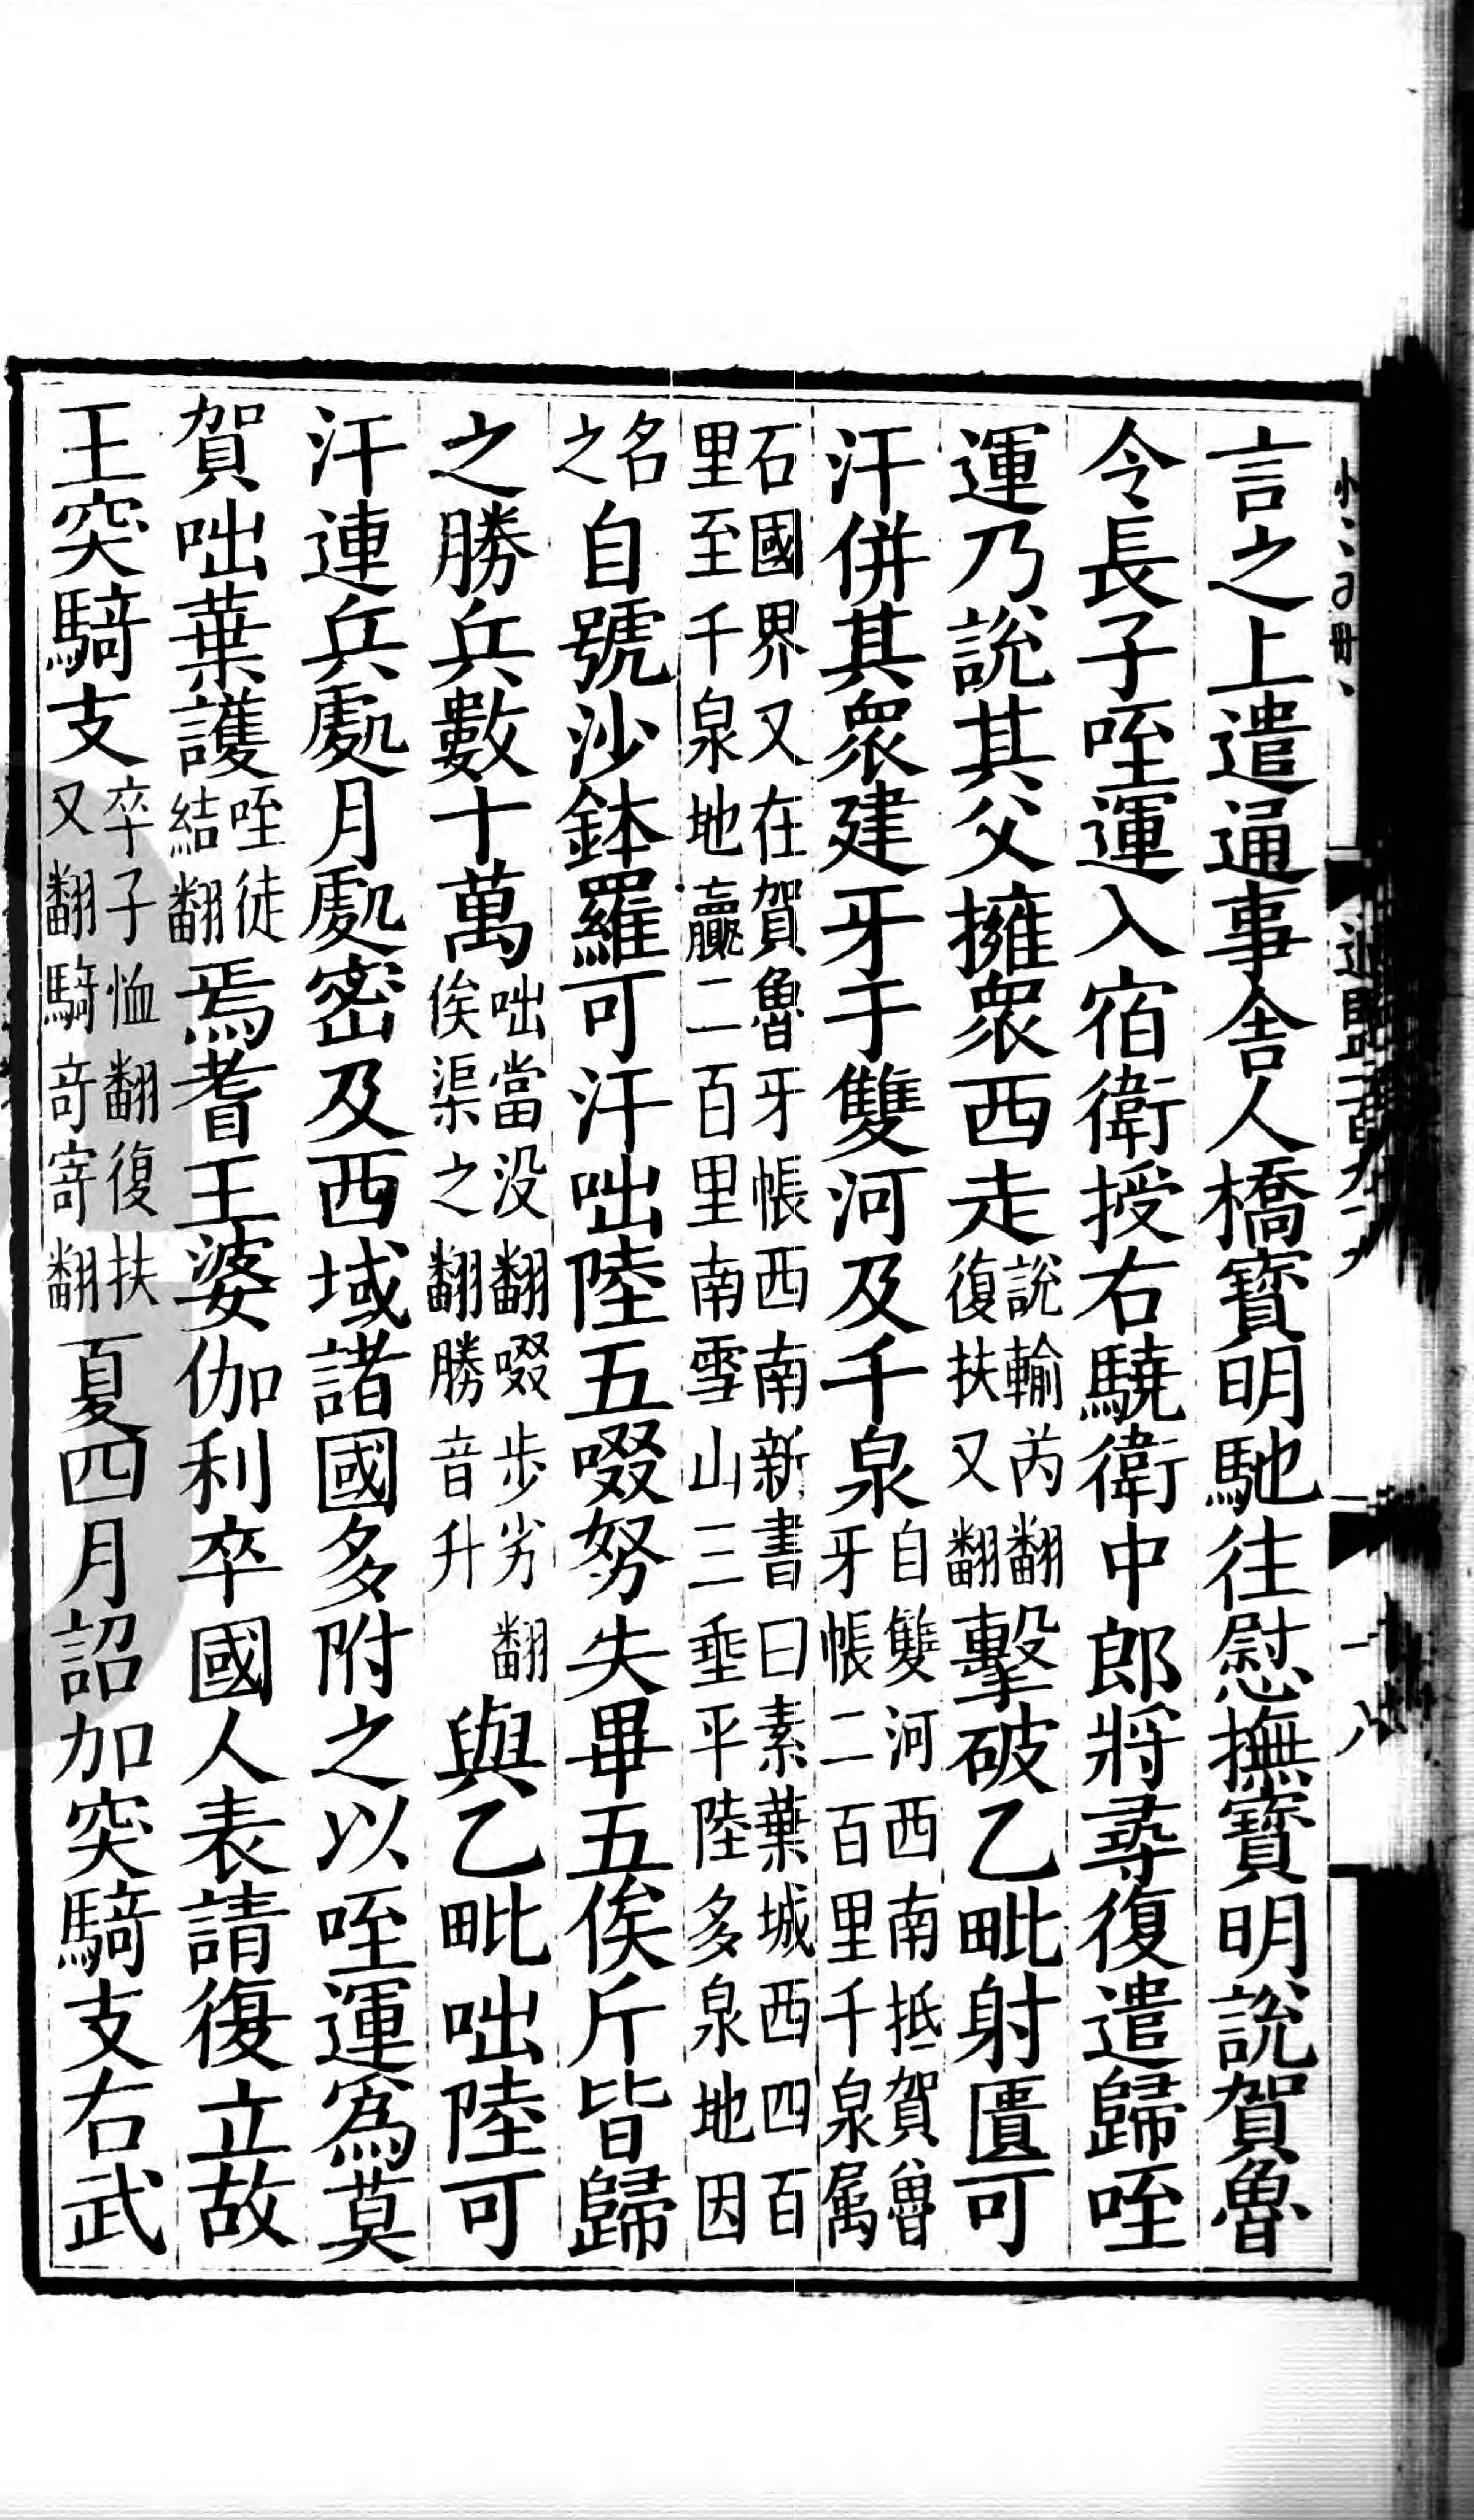 言之上遣通事舍人橋寶明馳往慰撫寶明說賀魯
令長子咥運入宿衛授右驍衛中郎將尋復遣歸咥
運乃說其父擁衆西走說輸芮翻復扶又翻擊破乙毗射匱可
汗併其衆建牙于雙河及千泉自雙河西南抵賀魯牙帳二百里千泉屬
石國界又在賀魯牙帳西南新書曰素葉城西四百里至千泉地贏二百里南雪山三垂平陸多泉地因
名之自號沙鉢羅可汗咄陸五啜努失畢五俟斤皆歸
之勝兵數十萬咄當没翻啜步劣翻俟渠之翻勝音升與乙毗咄陸可
汗連兵處月處密及西域諸國多附之以咥運爲莫
賀咄葉護咥徒結翻焉耆王婆伽利卒國人表請復立故
王突騎支卒子恤翻復扶又翻騎奇寄翻夏四月詔加突騎支右武